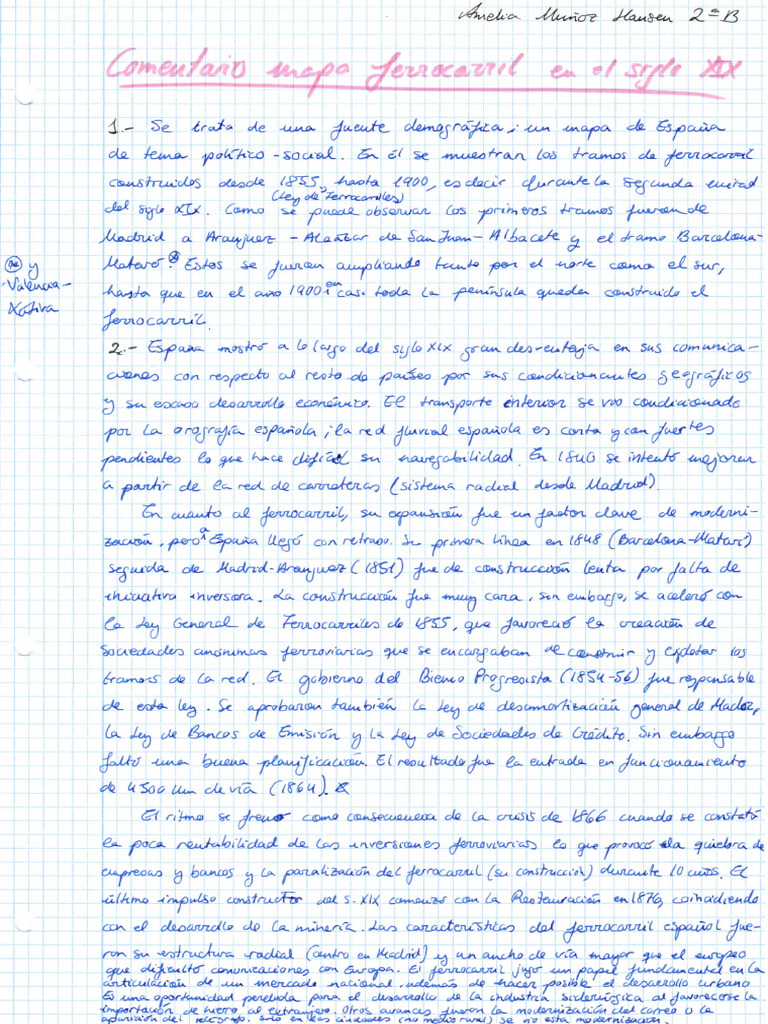 Amelia Muñoz Hansen 2ºB
Comentario mapa ferrocarril en el siglo XIX
1.- Se trata de una fuente demográfica; un mapa de España
de tema político-social. En él se muestran los tramos de ferrocarril
construidos desde 1855, hasta 1900, es decir durante la segunda mitad
(Ley de Ferrocarriles)
del siglo XIX. Como se puede observar los primeros tramos fueron de
Madrid a Aranjuez - Alcázar de San Juan - Albacete y el tramo Barcelona-
Mataró. Estos se fueron ampliando tanto por el norte como el sur,
y Valencia-
Xàtiva
hasta que en el año 1900 en casi toda la península queda construido el
ferrocarril.
2.- España mostró a lo largo del siglo XIX gran desventaja en sus comunica-
ciones con respecto al resto de países por sus condicionantes geográficos
y su escaso desarrollo económico. El transporte interior se vio condicionado
por la orografía española; la red fluvial española es corta y con fuertes
pendientes lo que hace difícil su navegabilidad. En 1840 se intentó mejorar
a partir de la red de carreteras (sistema radial desde Madrid).
En cuanto al ferrocarril, su expansión fue un factor clave de moderni-
zación, pero a España llegó con retraso. Su primera línea en 1848 (Barcelona-Mataró)
seguida de Madrid-Aranjuez (1851) fue de construcción lenta por falta de
iniciativa inversora. La construcción fue muy cara, sin embargo, se aceleró con
la Ley General de Ferrocarriles de 1855, que favoreció la creación de
sociedades anónimas ferroviarias que se encargaban de construir y explotar los
tramos de la red. El gobierno del Bienio Progresista (1854-56) fue responsable
de esta ley. Se aprobaron también la Ley de desamortización general de Madoz,
la Ley de Bancos de Emisión y la Ley de Sociedades de Crédito. Sin embargo
faltó una buena planificación. El resultado fue la entrada en funcionamiento
de 4500 km de vía (1864).
El ritmo se frenó como consecuencia de la crisis de 1866 cuando se constató
la poca rentabilidad de las inversiones ferroviarias lo que provocó la quiebra de
empresas y bancos y la paralización del ferrocarril (su construcción) durante 10 años. El
último impulso constructor del s. XIX comenzó con la Restauración en 1876, coincidiendo
con el desarrollo de la minería. Las características del ferrocarril español fue-
ron su estructura radial (centro en Madrid) y un ancho de vía mayor que el europeo
que dificultó comunicaciones con Europa. El ferrocarril jugó un papel fundamental en la
articulación de un mercado nacional, además de hacer posible el desarrollo urbano
Es una oportunidad perdida para el desarrollo de la industria siderúrgica al favorecerse la
importación de hierro al extranjero. Otros avances fueron la modernización del correo o la
aparición del telégrafo. Solo en las ciudades (no medio rural) se vio esta modernización.